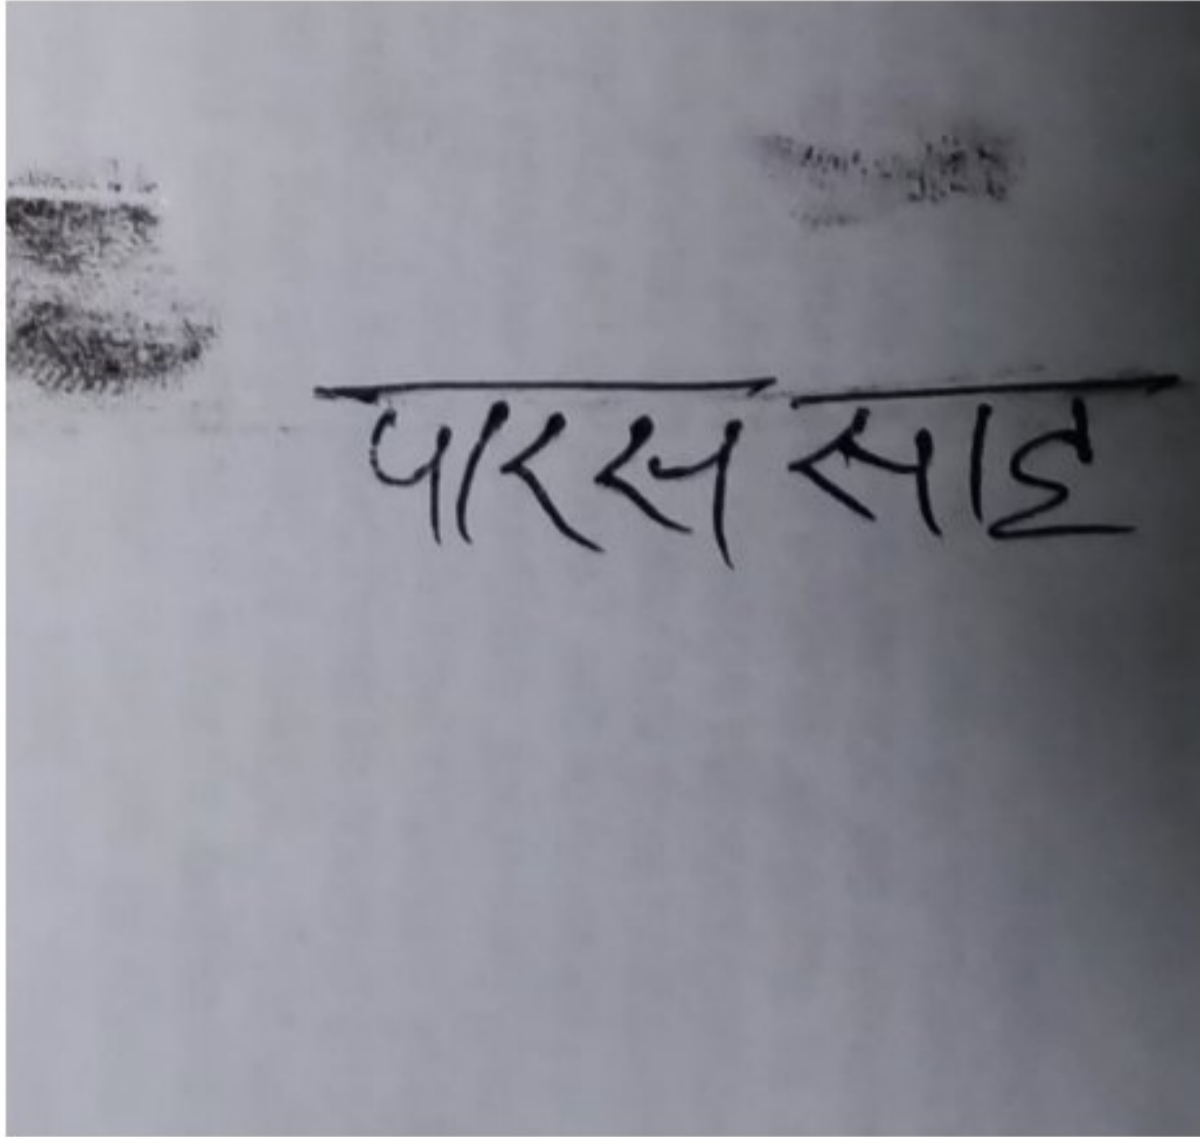 पारस साह